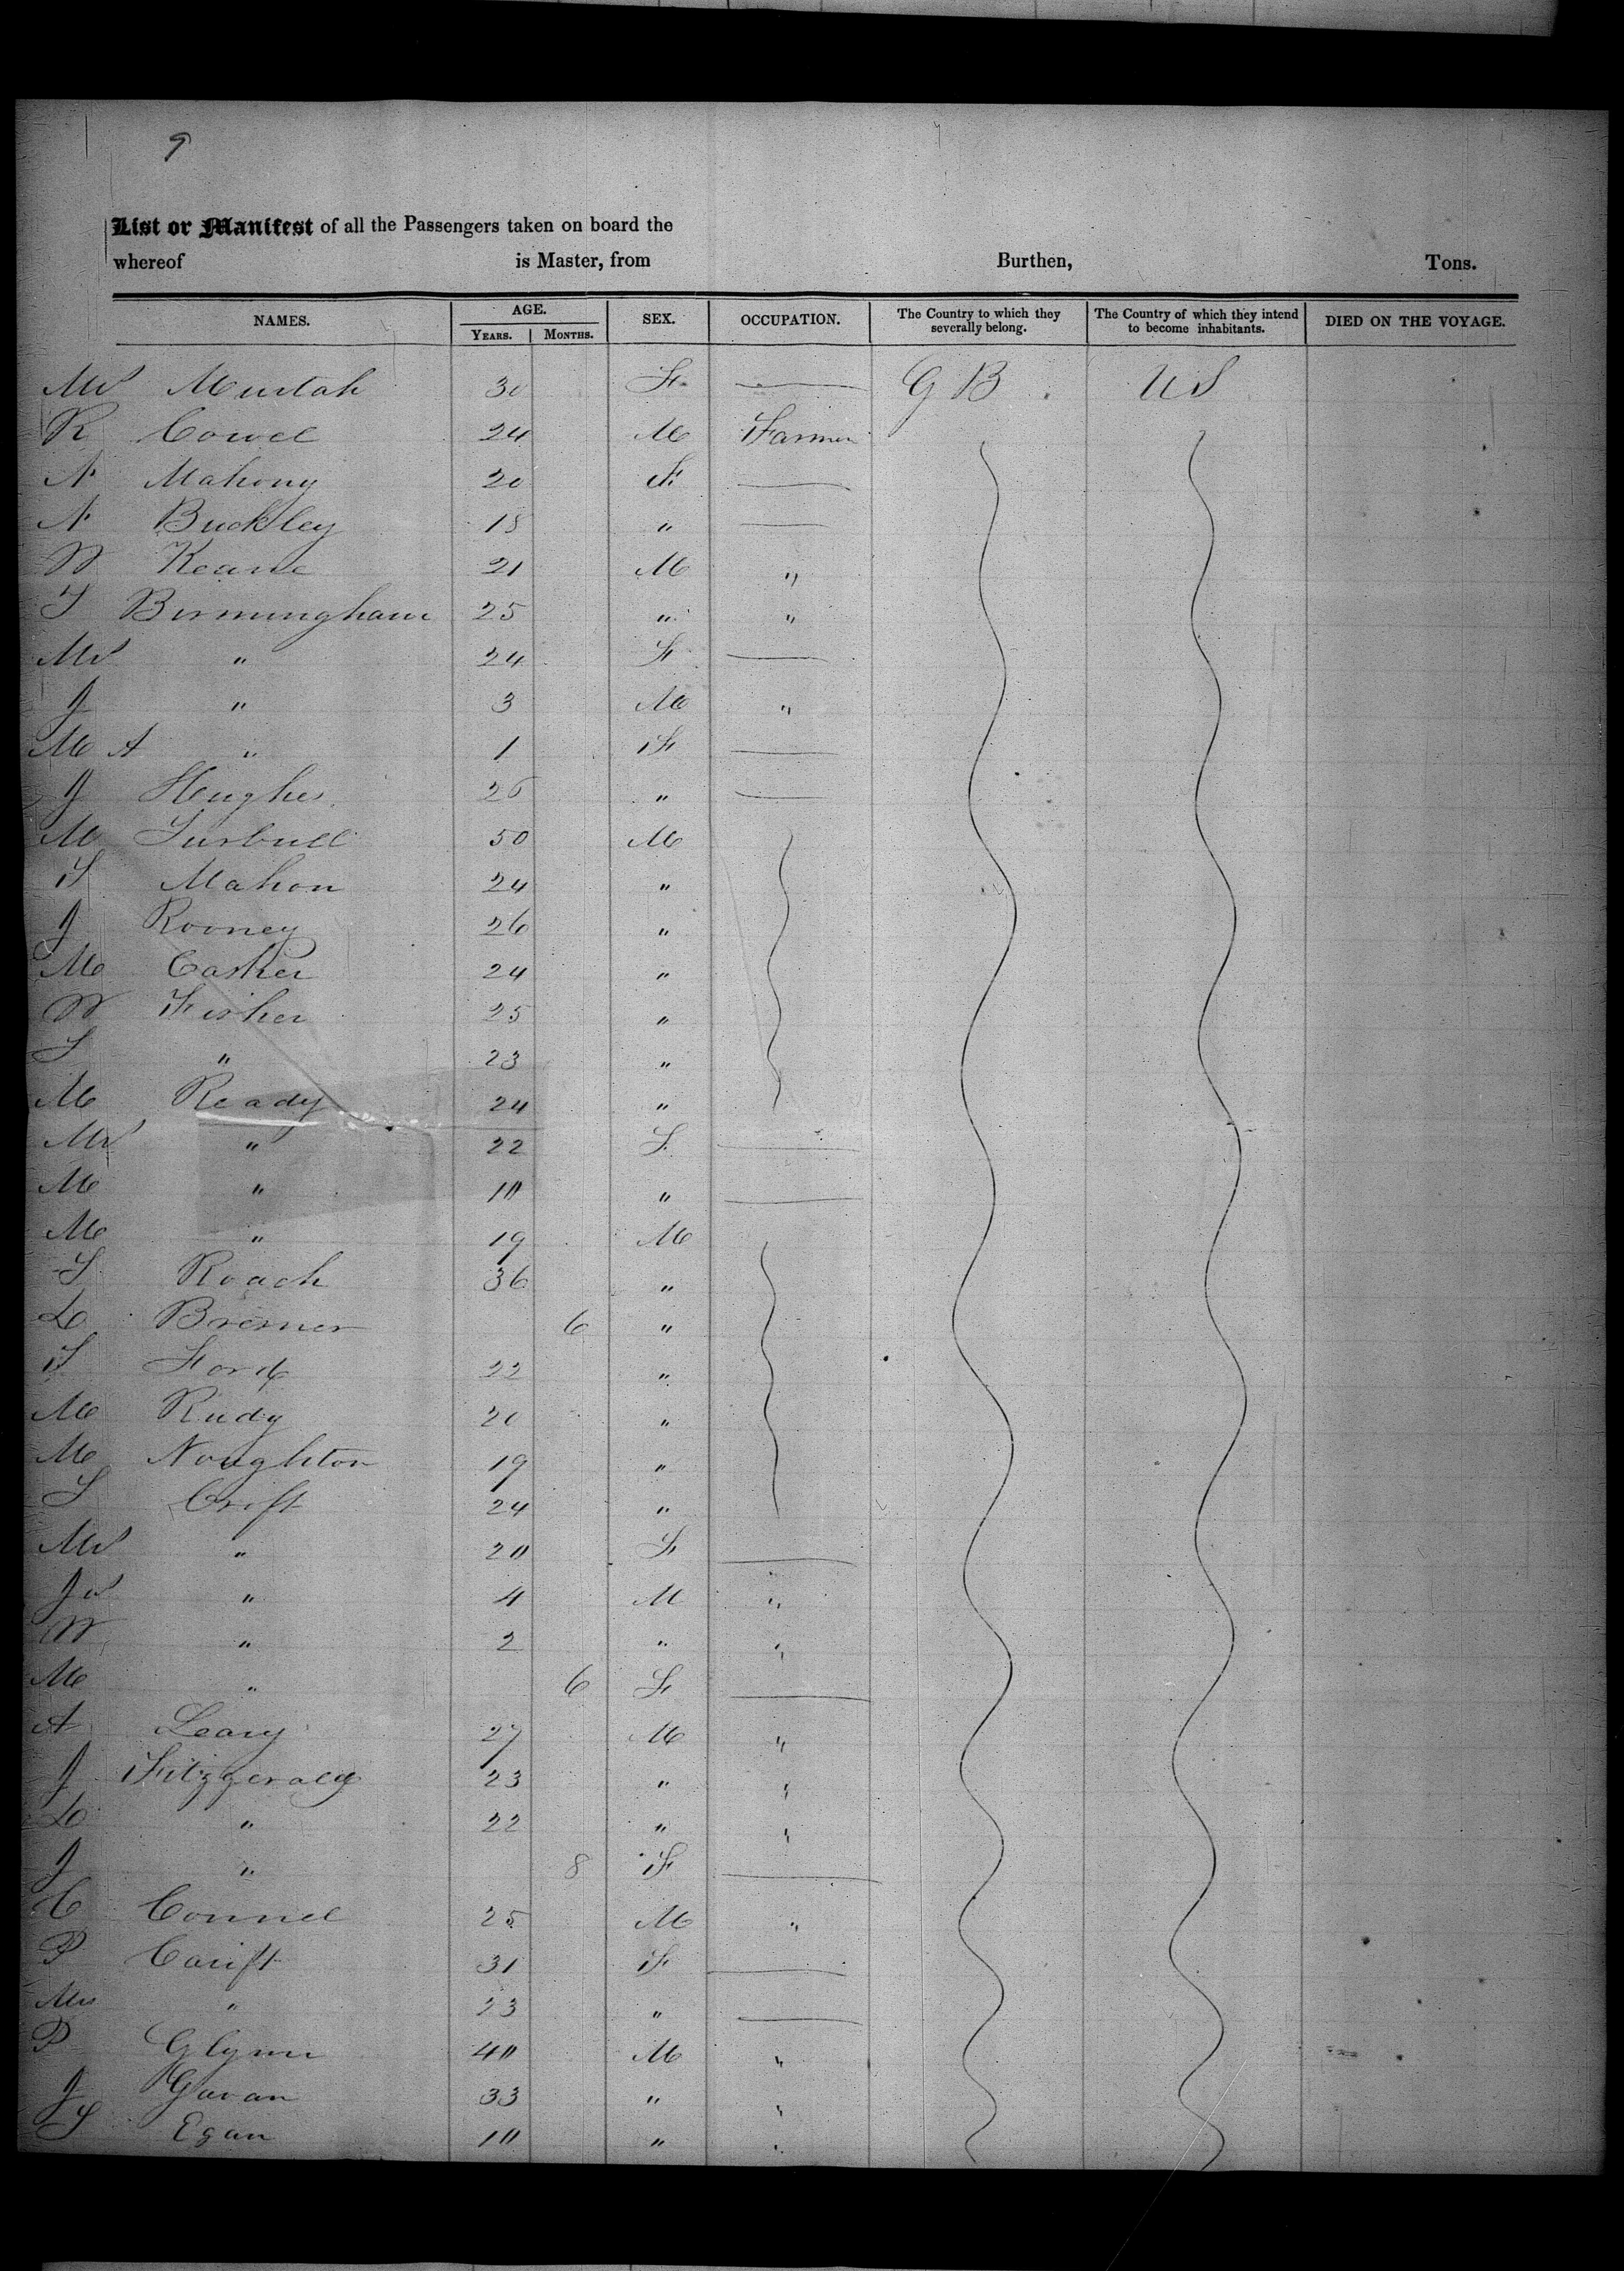 9
List or Manifest of all the Passengers taken on board the
whereof is Master, from Burthen, Tons.
NAMES. AGE. SEX. OCCUPATION. The Country to which they severally belong. The Country of which they intend to become inhabitants. DIED ON THE VOYAGE.
YEARS. MONTHS.
Mrs Murtah 30 F — G B U S
R Cowel 24 M Farmer
N Mahony 20 F —
N Buckley 18 " —
W Keane 21 M "
T Birmingham 25 " "
Mrs " 24 F —
J " 3 M "
M A " 1 F —
J Hughes 26 " —
M Turbull 50 M
T Mahon 24 "
J Rooney 26 "
M Casher 24 "
W Fisher 25 "
S " 23 "
M Ready 24 "
Mrs " 22 F —
M " 10 " —
M " 19 M
S Roach 36 "
D Bresner 6 "
T Ford 22 "
M Rudy 20 "
M Noughton 19 "
S Crift 24 "
Mrs " 20 F —
Js " 4 M "
W " 2 " "
M " 6 F —
A Leary 27 M "
J Fitzgerald 23 " "
D " 22 " "
J " 8 F —
C Connel 25 M "
P Carift 31 F —
Mrs " 23 " —
P Glynn 40 M "
J Gavan 33 " "
S Egan 10 " "